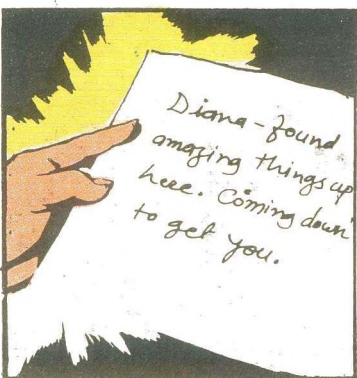 Diana - found
amazing things up
here. Coming down
to get you.